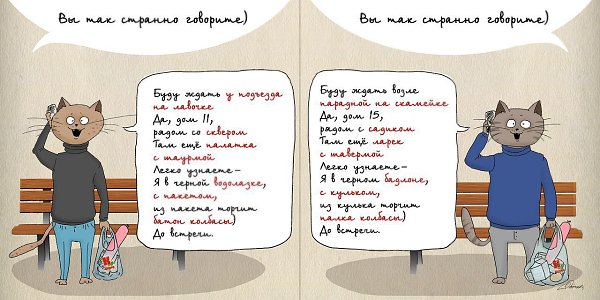 Вы так странно говорите)
Буду ждать у подъезда
на лавочке
Да, дом 11,
рядом со сквером
Там ещё палатка
с шаурмой
Легко узнаете-
Я в черной водолазке,
с пакетом,
из пакета торчит
батон колбасы)
До встречи.
Вы так странно говорите)
Буду ждать возле
парадной на скамейке
Да, дом 15,
рядом с садиком
Там ещё ларек
с шавермой
Легко узнаете-
Я в черном бадлоне,
с кульком,
из кулька торчит
палка колбасы)
До встречи.